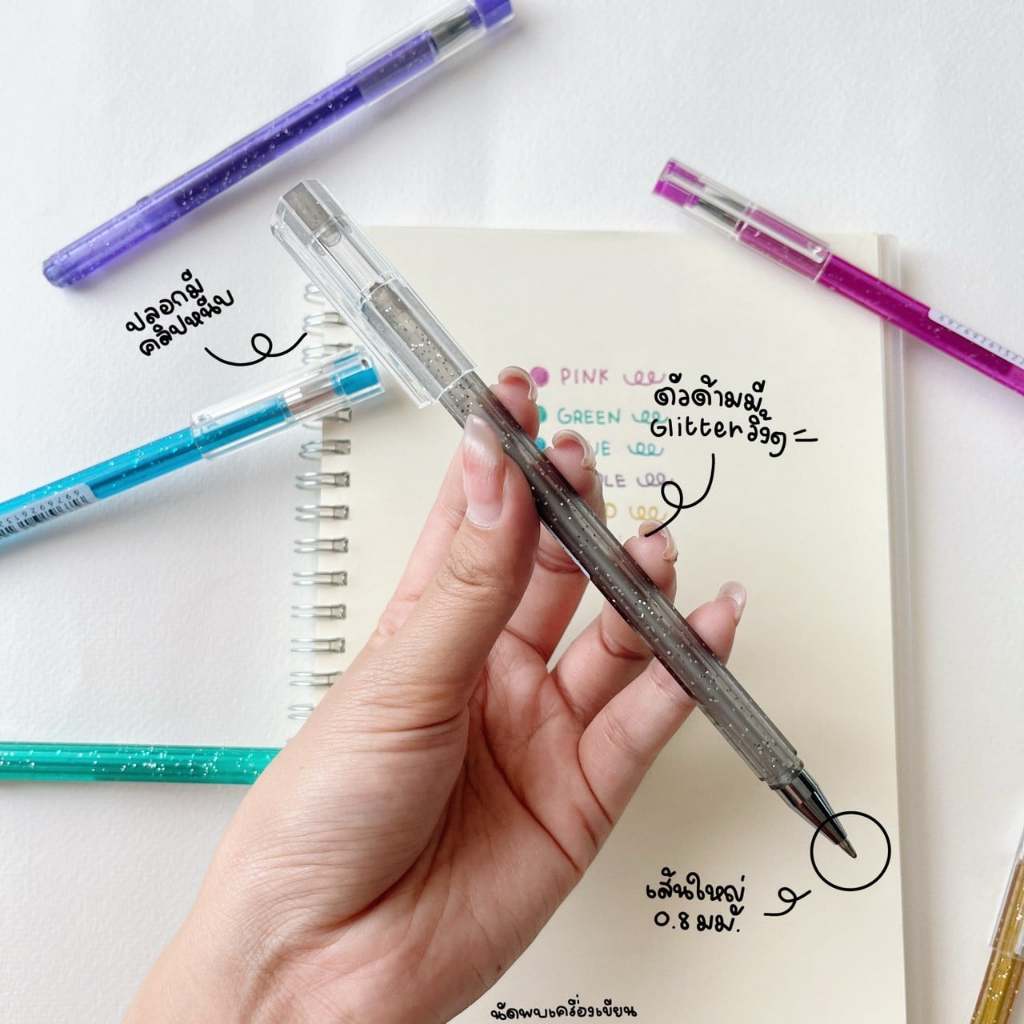 ปลอกมี
คลิปหนีบ
PINK
GREEN
ตัวด้ามมี
Glitter วิ้งๆ
เส้นใหญ่
0.8 มม.
นัดพบเครื่องเขียน